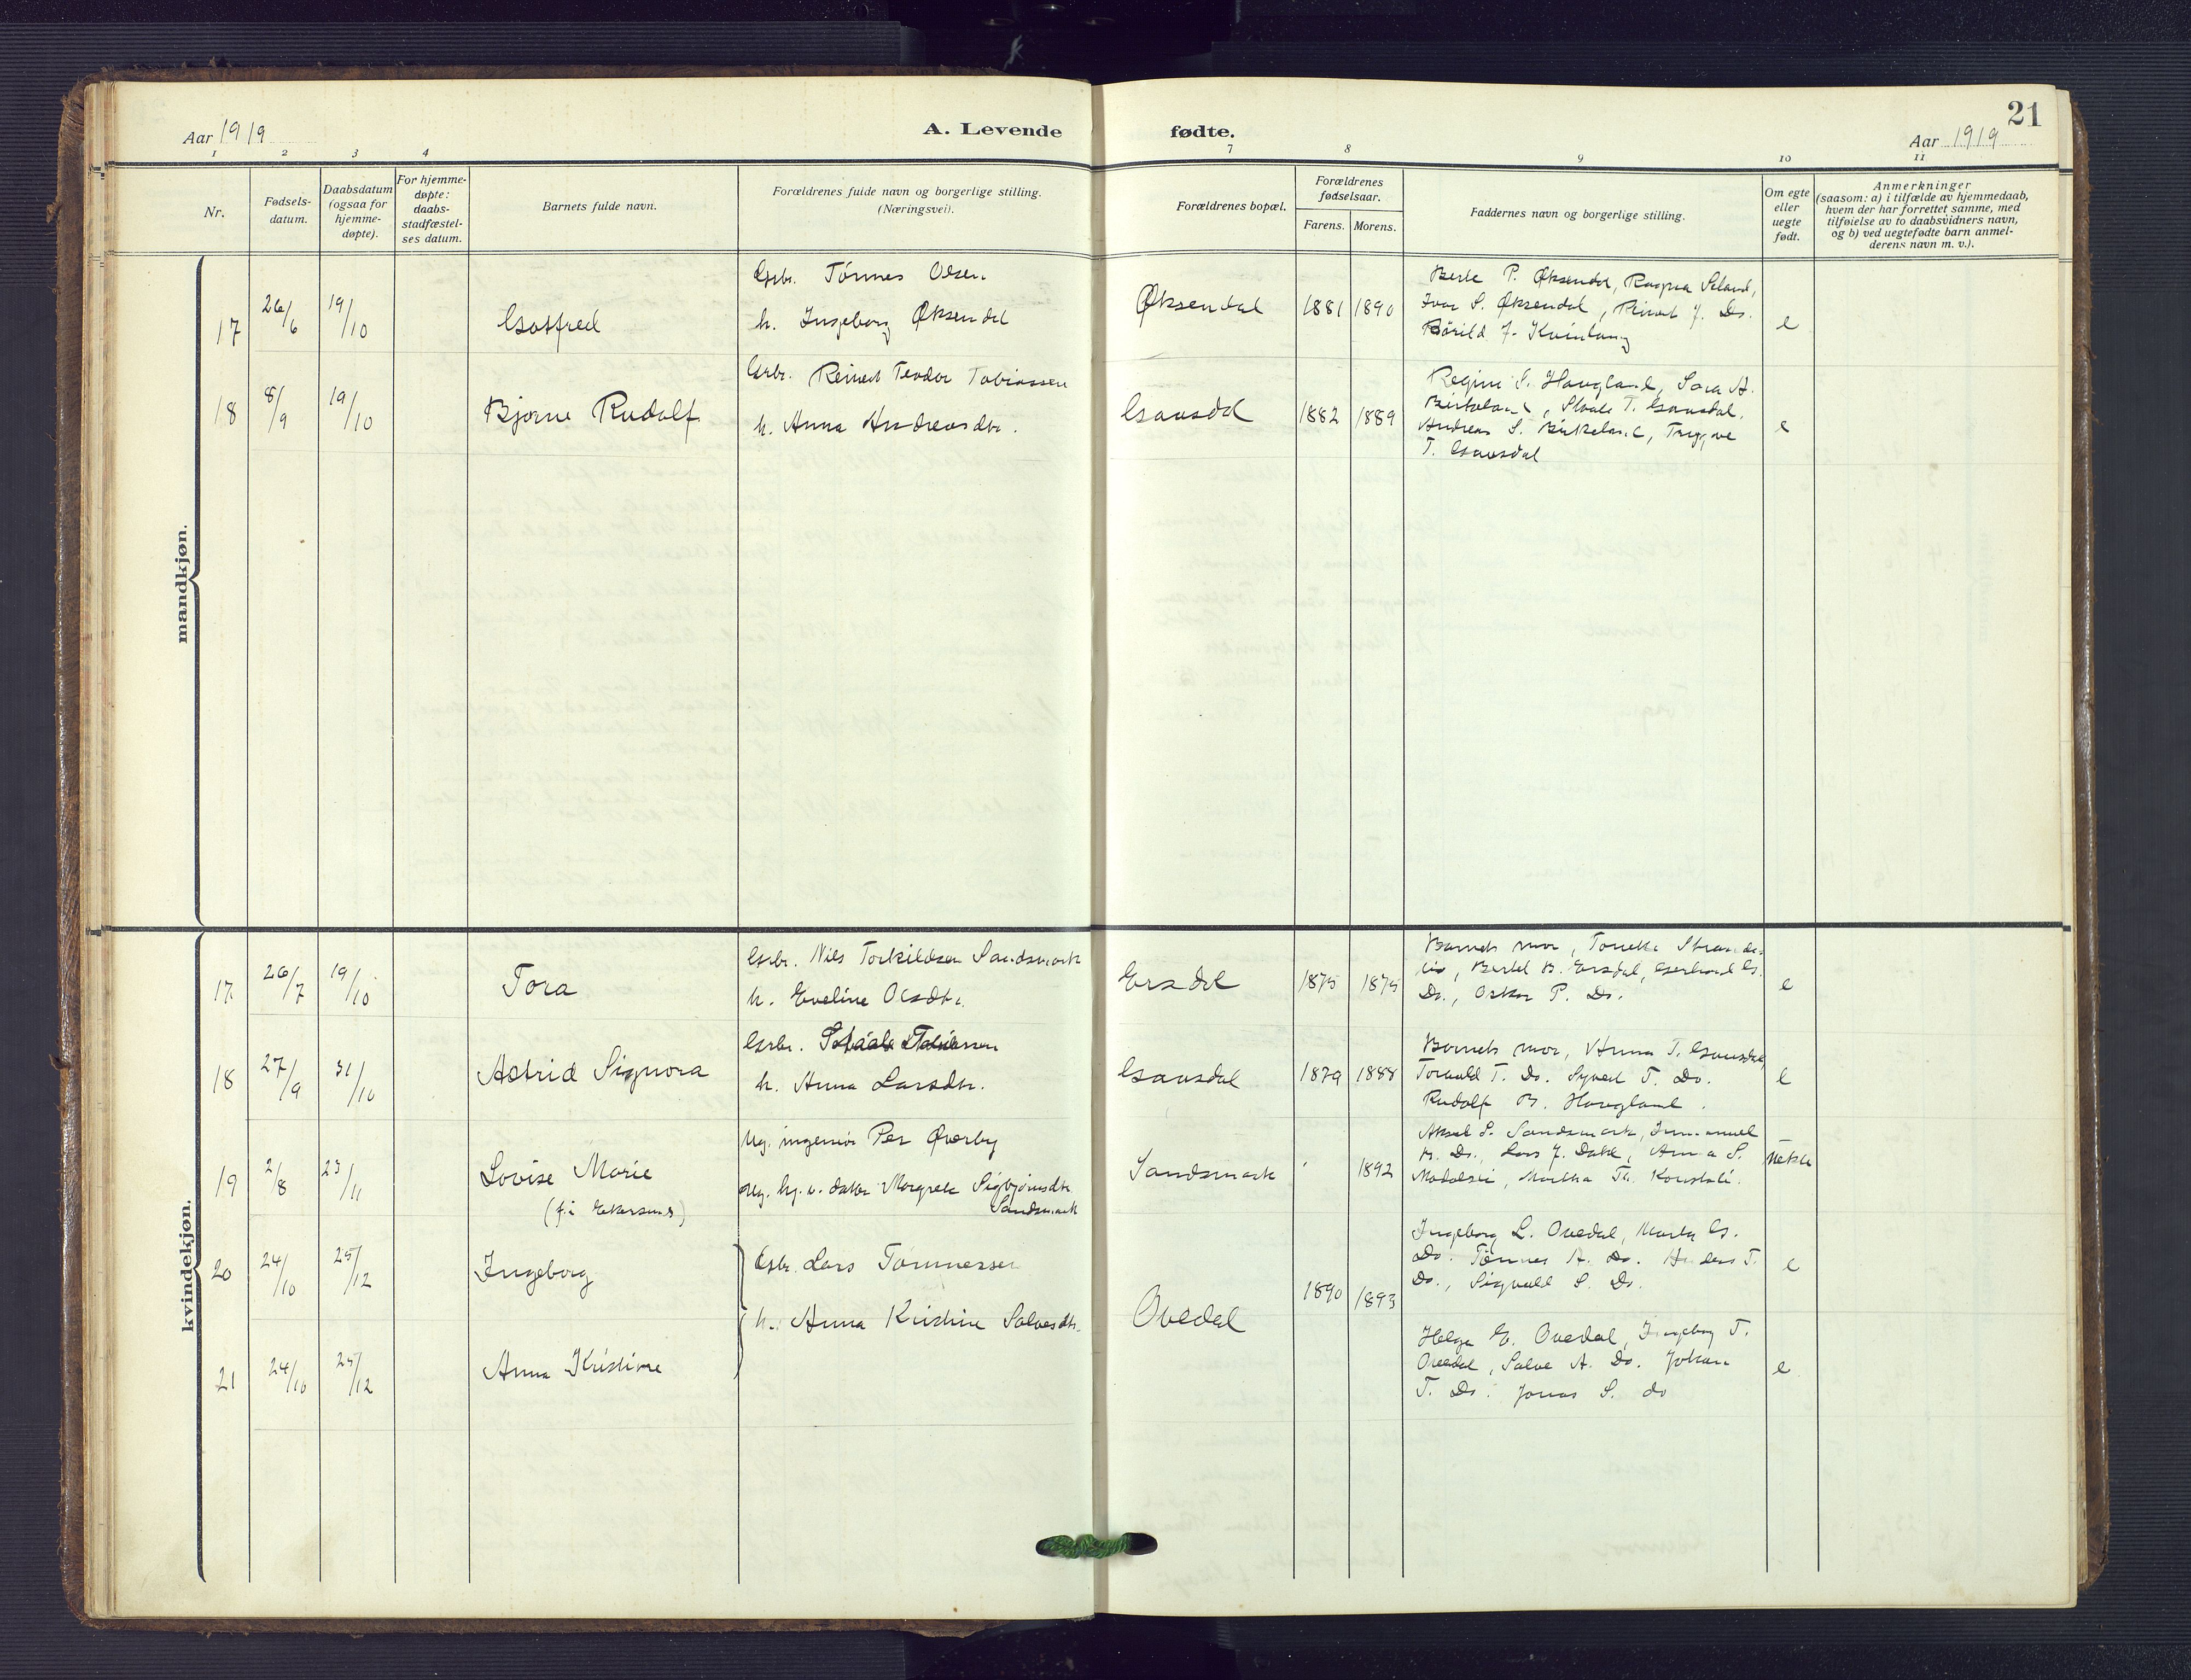 21
Aar 1919
A. Levende
fødte.
Aar 1919
1 2 3 4 7 8 9 10 11
Nr.
Fødsels-
datum.
Daabsdatum
(ogsaa for
hjemme-
døpte).
For hjemme-
døpte:
daabs-
stadfæstel-
ses datum.
Barnets fulde navn.
Forældrenes fulde navn og borgerlige stilling.
(Næringsvei).
Forældrenes bopæl.
Forældrenes
fødselsaar.
Farens. Morens.
Faddernes navn og borgerlige stilling.
Om egte
eller
uegte
født.
Anmerkninger
(saasom: a) i tilfælde av hjemmedaab,
hvem der har forrettet samme, med
tilføielse av to daabsvidners navn,
og b) ved uegtefødte barn anmel-
derens navn m. v.).
mandkjøn.
17 26/6 19/10 Gotfred
Gbr. Tønnes Olsen
h. Ingeborg Øksendal
Øksendal 1881 1890
Berte P. Øksendal, Ragna Seland,
Ivar S. Øksendal, Reinert J. Do.
J. Kvinlaug
e
18 8/9 19/10 Bjarne Rudolf
Gbr. Reinert Teodor Tobiassen
h. Anna Andreasdtr.
Gausdal 1882 1889
Regine S. Haugland, Sara A.
Birkeland, T. Gausdal,
Andreas S. Birkeland, Trygve
T. Gausdal
e
kvindekjøn.
17 26/7 19/10 Tora
Gbr. Nils Torkildsen Sandsmark
h. Eveline Olsdtr.
Ersdal 1875 1875
Barnets mor, Tonette
Bertel B. Ersdal, Gerhard G.
Do., Oskar P. Do.
e
18 27/9 31/10 Astrid Signora
Gbr. Tobiassen
h. Anna Larsdtr.
Gausdal 1879 1888
Barnets mor, Anna T. Gausdal,
Torvald T. Do. Syvert T. Do.
Rudolf B. Haugland.
e
19 2/8 23/11 Lovise Marie
(f. i Ekersund)
Ug. ingeniør Per Øverby
Ug. hj. v. datter Margrete Sigbjørnsdtr.
Sandsmark
Sandsmark 1892
Aksel S. Sandsmark, Immanuel
K. Do., Lars J. Dahl, Anna S.
Martha Th.
uekte
20 24/10 25/12 Ingeborg
Gbr. Lars Tønnessen
h. Anna Kristine Salvesdtr.
Ovedal 1890 1893
Ingeborg L. Ovedal, Marta G.
Do. Tønnes A. Do. Anders T.
Do., Sigvald S. Do.
e
21 24/10 25/12 Anna Kristine
Helge E. Ovedal, Ingeborg T.
Ovedal, Salve A. Do. Johan
T. Do. Jonas S. do
e